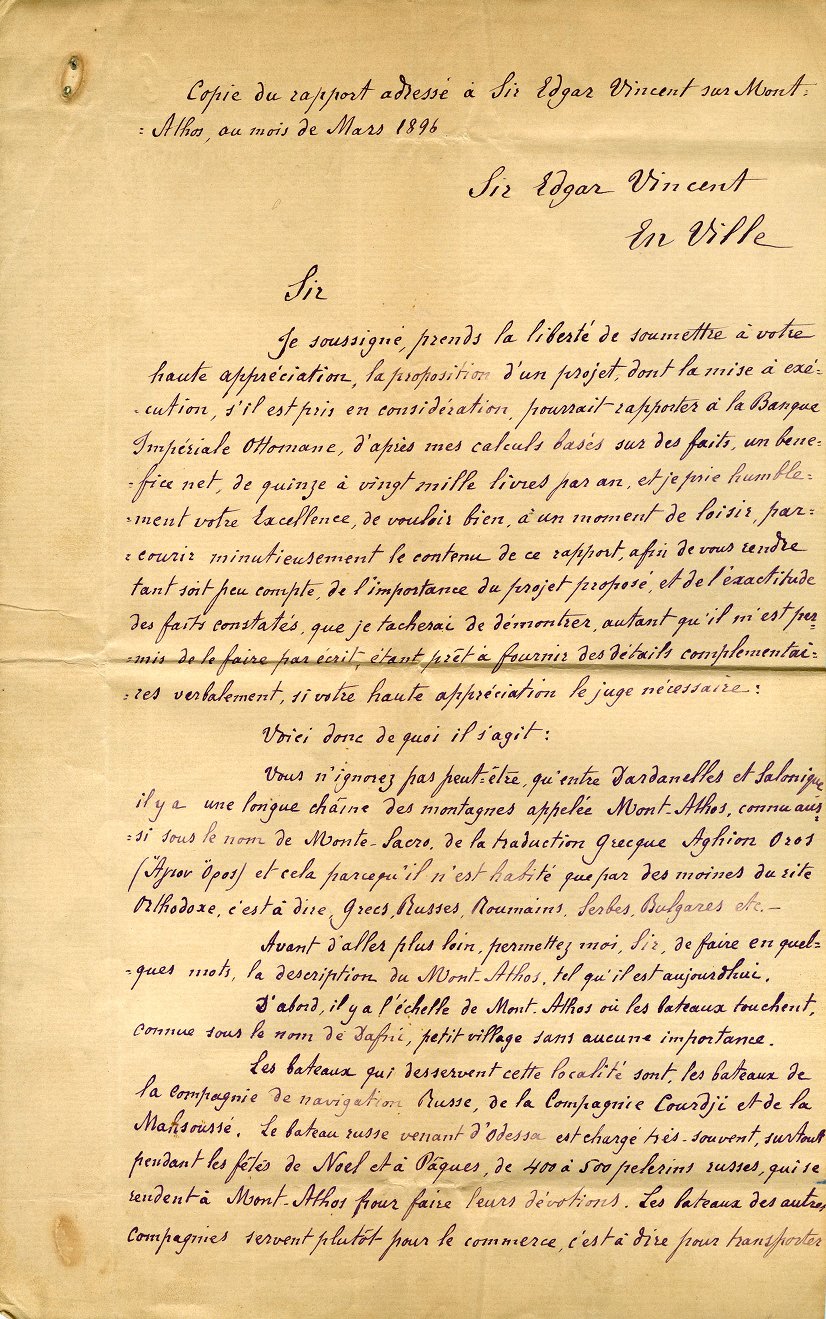 Copie du rapport adressé à Sir Edgar Vincent sur Mont=
=Athos, au mois de Mars 1896
Sir Edgar Vincent
En Ville
Sir
Je soussigné, prends la liberté de soumettre à votre
haute appréciation, la proposition d'un projet, dont la mise à exé=
=cution, s'il est pris en considération, pourrait rapporter à la Banque
Impériale Ottomane, d'après mes calculs basés sur des faits, un bene=
=fice net, de quinze à vingt mille livres par an, et je prie humble=
=ment votre Excellence, de vouloir bien, à un moment de loisir, par=
=courir minutieusement le contenu de ce rapport, afin de vous rendre
tant soit peu compte, de l'importance du projet proposé, et de l'éxactitude
des faits constatés, que je tacherai de démontrer, autant qu'il m'est per=
=mis de le faire par écrit, étant prêt à fournir des détails complementai=
=res verbalement, si votre haute appréciation le juge nécessaire:
Voici donc de quoi il s'agit:
Vous n'ignorez pas peut-être, qu'entre Dardanelles et Salonique
il y a une longue chaîne des montagnes appelée Mont-Athos, connu aus=
=si sous le nom de Monte-Sacro, de la traduction Grecque Aghion Oros
(Ἅγιον Ὄρος) et cela parcequ'il n'est habité que par des moines du rite
Orthodoxe, c'est à dire, Grecs, Russes, Roumains, Serbes, Bulgares etc.-
Avant d'aller plus loin, permettez moi, Sir, de faire en quel=
=ques mots, la description du Mont-Athos, tel qu'il est aujourdhui.
D'abord, il y a l'échelle de Mont-Athos où les bateaux touchent,
connue sous le nom de Dafni, petit village sans aucune importance.
Les bateaux qui desservent cette localité sont, les bateaux de
la compagnie de navigation Russe, de la Compagnie Courdji et de la
Mahsoussé. Le bateau russe venant d'Odessa est chargé très-souvent, surtout
pendant les fêtés de Noel et à Pâques, de 400 à 500 pelerins russes, qui se
rendent à Mont-Athos pour faire leurs dévotions. Les bateaux des autres
Compagnies servent plutôt pour le commerce, c'est à dire pour transporter